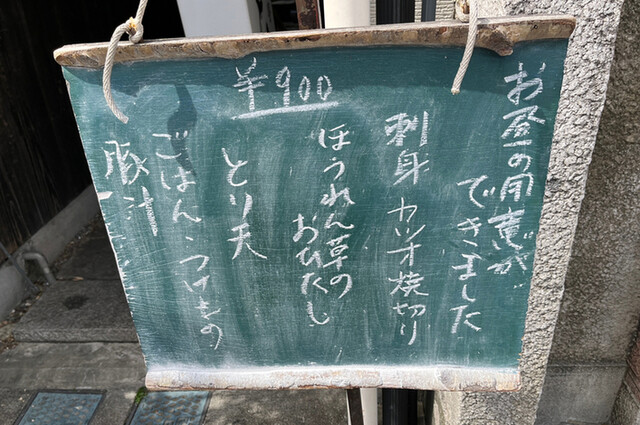 お昼の用意が
できました
刺身 カツオ焼切り
ほうれん草の
おひたし
とり天
ごはん・つけもの
豚汁
¥900